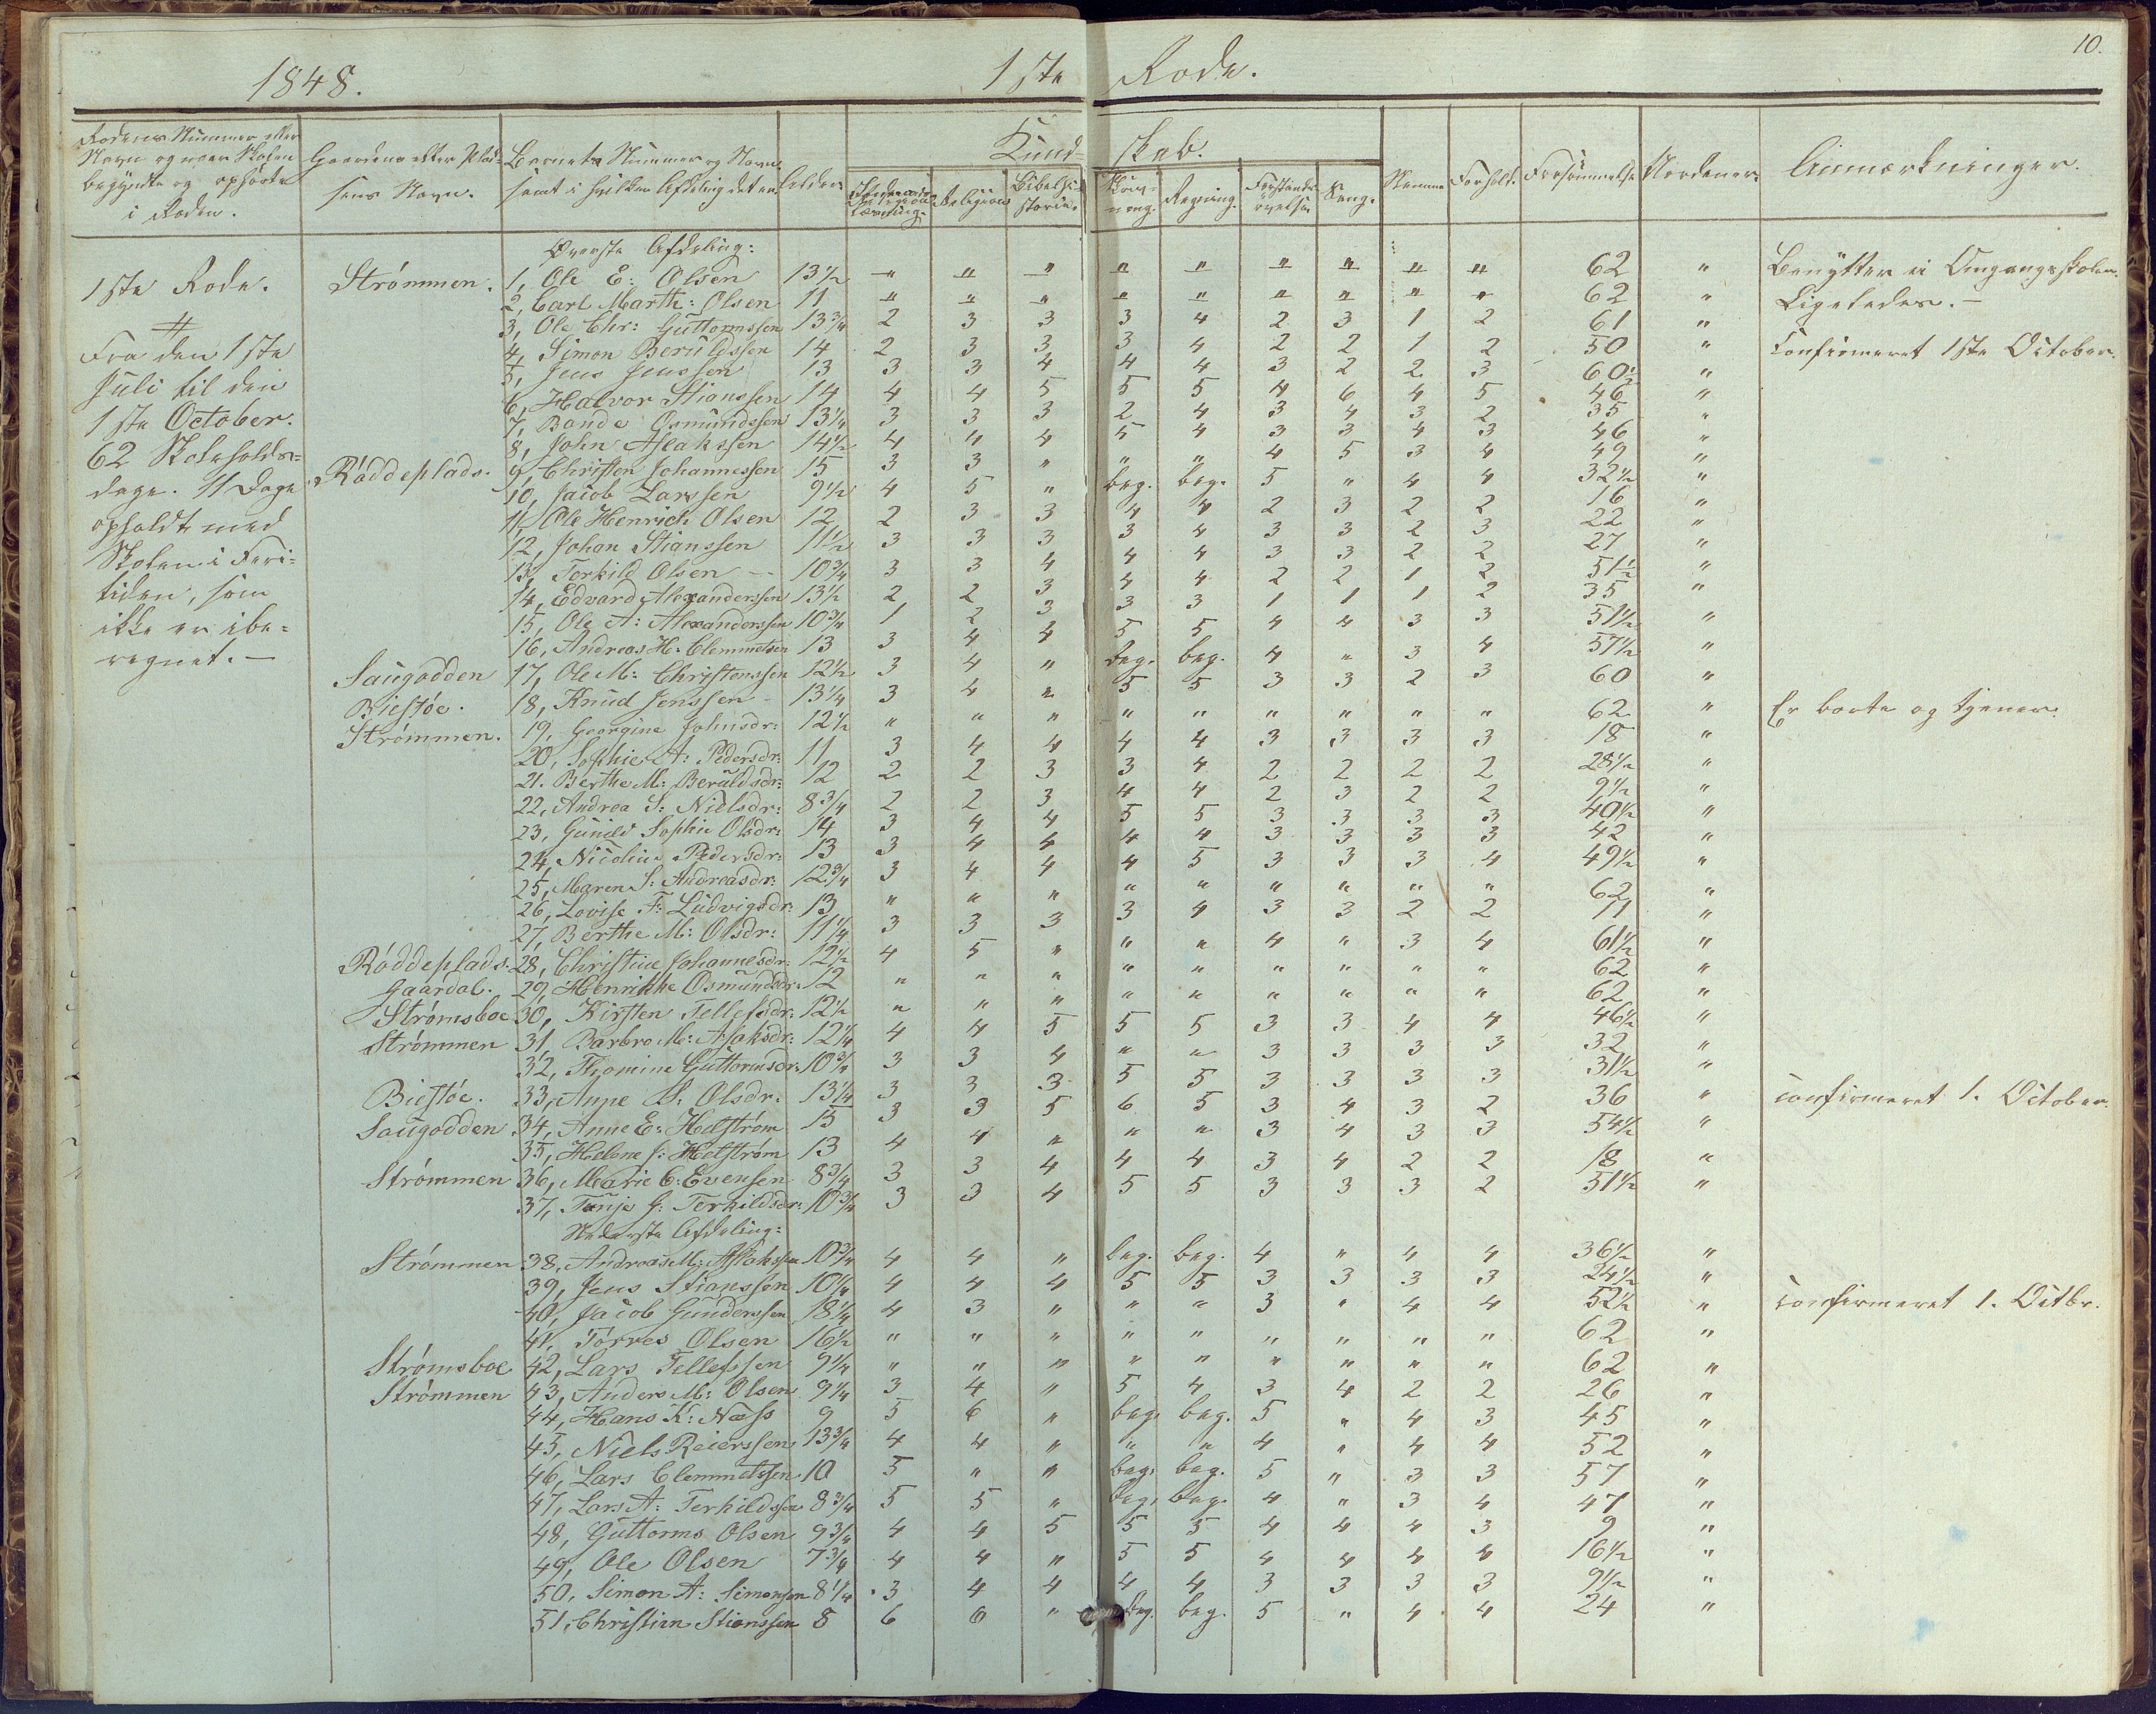 10.
1848. 1ste Rode.
Rodens Nummer eller Navn og naar Skolen begyndte og ophörte i Roden. Gaardens eller Pladsens Navn. Barnets Nummer og Navn samt i hvilken Afdeling det er Alder Kundskab. Religion Bibelhistorie. Skrivning. Regning. Forstandsövelse Sang. Nemme Forhold. Forsömmelse Anmærkninger.
Øverste Afdeling:
1ste Rode. Strømmen. 1, Ole E: Olsen 13½ " " " " " " " " " 62 " Benytter ei Omgangsskolen.
2, Carl Marth: Olsen 11 " " " " " " " " " 62 " Ligeledes.—
3, Ole Chr: Guttormssen 13¾ 2 3 3 3 4 2 3 1 2 61 "
Fra den 1ste 4, Simon Beruldssen 14 2 3 3 3 4 2 2 1 2 50 " Confirmeret 1ste October.
Juli til den 5, Jens Jenssen 13 3 3 4 4 4 3 2 2 3 60½ "
6, Halvor Stianssen 14 4 4 5 5 5 4 6 4 5 46 "
1ste October. 7, Bande Osmundssen 13¼ 3 3 3 2 4 3 4 3 2 35 "
8, John Aslakssen 14½ 4 4 4 5 4 3 3 4 3 46 "
62 Skoleholds= Röddeplads. 9, Christen Johannessen 15 3 3 " " " 4 5 3 4 49 "
dage. 11 Dage 10, Jacob Larssen 9½ 4 5 " beg. beg. 5 " 4 4 32½ "
opholdt med 11, Ole Henrich Olsen 12 2 3 3 4 4 2 3 2 2 16 "
12, Johan Stianssen 11½ 3 3 3 3 4 3 3 2 3 22 "
Skolen i Feri= 13, Torkild Olsen 10¾ 3 3 4 4 4 3 3 2 2 27 "
tiden, som 14, Edvard Alexanderssen 13½ 2 2 3 4 4 2 2 1 2 51½ "
ikke er ibe= 15, Ole A: Alexanderssen 10¾ 1 2 3 3 3 1 1 1 2 35 "
regnet.— 16, Andreas H: Clemmetsen 13 3 4 4 5 5 4 4 3 3 51½ "
Saugodden 17, Ole M: Christenssen 12½ 3 4 " beg. beg. 4 " 3 4 57½ "
Biestöe. 18, Knud Jenssen 13¼ 3 4 " 5 5 3 3 2 3 60 "
Strömmen. 19, Georgine Johnsdr: 12½ " " " " " " " " " 62 " Er borte og tjener.
20, Sophie A: Pedersdr: 11 3 4 4 4 4 3 3 3 3 18 "
21. Berthe M: Beruldsdr: 12 2 2 3 3 4 2 2 2 2 28½ "
22, Andrea S: Nielsdr: 8¾ 2 2 3 4 4 2 3 2 2 9½ "
23, Gunild Sophie Olsdr: 14 3 4 4 5 5 3 3 3 3 40½ "
24, Nicoline Pedersdr: 13 3 4 4 4 4 3 3 3 3 42 "
25, Maren S: Andreasdr: 12¾ 3 4 4 4 5 3 3 3 4 49½ "
26, Lovise F: Ludvigsdr: 13 " " " " " " " " " 62 "
27, Berthe M: Olsdr: 11¼ 3 3 3 3 4 3 3 2 2 11 "
Röddeplads. 28, Christine Johannesdr: 12½ 4 5 " " " 4 " 3 4 61½ "
Gaardal. 29, Henrikke Osmundsdr: 12 " " " " " " " " " 62 "
Strömsboe 30, Kirsten Tellefsdr: 12½ " " " " " " " " " 62 "
Strömmen 31, Barbro M: Aslaksdr: 12¼ 4 4 5 5 5 3 3 4 4 46½ "
32, Thomine Guttormsdr: 10¾ 3 3 4 " " 3 3 3 3 32 "
Biestöe. 33, Anne S: Olsdr: 13¼ 3 3 3 5 5 3 3 3 3 31½ "
Saugodden 34, Anne E: Helström 15 3 3 5 6 5 3 4 3 2 36 " confirmeret 1. October.
35, Helene J: Helström 13 4 4 " " " 3 4 3 3 54½ "
Strömmen 36, Marie C: Evensen 8¾ 3 3 4 4 4 3 4 2 2 18 "
37, Tanje G: Terkildsdr: 10¾ 3 3 4 5 5 3 3 3 2 51½ "
Nederste Afdeling:
Strömmen 38, Andreas M: Aslakssen 10¾ 4 4 " beg. beg. 4 " 4 4 36½ "
39, Jens Stianssen 10¼ 4 4 4 5 5 3 3 3 3 24½ "
40, Jacob Gunderssen 18¼ 4 3 " " " 3 " 4 4 52½ " confirmeret 1. Octbr.
41, Törres Olsen 16½ " " " " " " " " " 62 "
Strömsboe 42, Lars Tellefssen 9¼ " " " " " " " " " 62 "
Strömmen 43, Anders M: Olsen 9¼ 3 4 " 5 4 3 4 2 2 26 "
44, Hans K: Næss 9 5 6 " beg. beg. 5 " 4 3 45 "
45, Niels Reierssen 13¾ 4 4 " " " 4 " 4 4 52 "
46, Lars Clemmetssen 10 5 " " beg. beg. 5 " 3 3 57 "
47, Lars A: Terkildssen 8¾ 5 5 " beg. beg. 4 " 3 4 47 "
48, Guttorms Olsen 9¾ 4 4 5 5 5 4 4 4 3 9 "
49, Ole Olsen 7¾ 4 4 " 5 5 4 4 4 4 16½ "
50, Simon A: Simonssen 8¼ 3 4 4 4 4 3 3 3 3 9½ "
51, Christian Stianssen 8 6 6 " beg. beg. 5 " 4 4 24 "